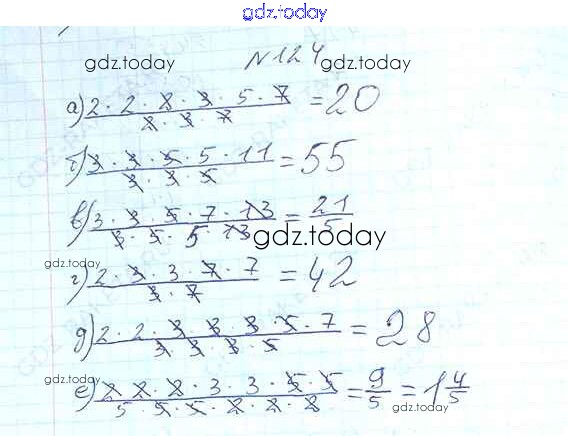 gdz.today
gdz.today N 124 gdz.today
а) 2 · 2 · 2 · 3 · 5 · 7 / 2 · 3 · 7 = 20
б) 3 · 3 · 5 · 5 · 11 / 3 · 3 · 5 = 55
в) 3 · 3 · 5 · 7 · 13 / 3 · 5 · 5 · 13 = 21/5
gdz.today
gdz.today
г) 2 · 3 · 3 · 7 · 7 / 3 · 7 = 42
д) 2 · 2 · 3 · 3 · 3 · 5 · 7 / 3 · 3 · 3 · 5 = 28
gdz.today
е) 2 · 2 · 2 · 3 · 3 · 5 · 5 / 5 · 5 · 5 · 2 · 2 · 2 = 9/5 = 1 4/5
gdz.today